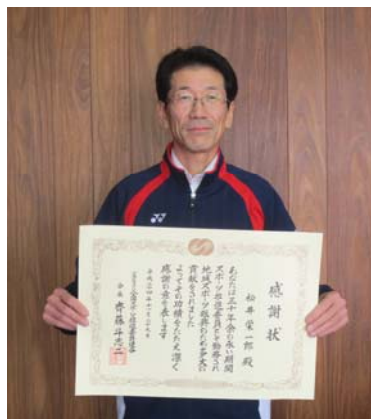 感謝状
松井栄一郎 殿
あなたは三十年余の永い期間
スポーツ推進委員として勤務され
地域スポーツ振興のため多大に
貢献をされました
よってその功績をたたえ深く
感謝の意を表します
会長 齊藤斗志二